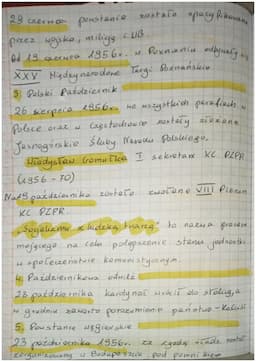 29 czerwca powstanie zostało spacyfikowane
przez wojsko, milicję i UB
Od 19 czerwca 1956r. w Poznaniu odbywały się
XXV Międzynarodowe Targi Poznańskie
3. Polski Październik
26 sierpnia 1956r. na wszystkich parafiach w
Polsce oraz w Częstochowie zostały złożone
Jasnogórskie Śluby Narodu Polskiego.
Władysław Gomułka I sekretarz KC PZPR
(1956-70)
Na 19 października zostało zwołane VIII Plenum
KC PZPR.
"Socjalizm z ludzką twarzą" to nazwa
mającego na celu polepszenie stanu jednostki
w społeczeństwie komunistycznym.
4. Październikowa odwilż
28 października kardynał wrócił do stolicy, a
w grudniu zawarto porozumienie państwo-Kościół
5. Powstanie węgierskie
23 października 1956r. za zgodą władz został
zorganizowany w Budapeszcie pod pomnikiem